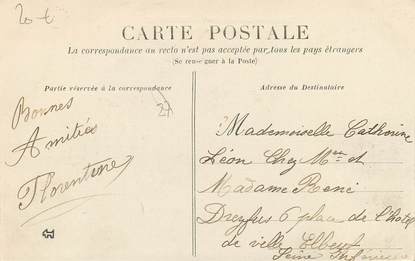 20 €
CARTE POSTALE
La correspondance au recto n'est pas acceptée par tous les pays étrangers
(Se renseigner à la Poste)
Partie réservée à la correspondance
Adresse du Destinataire
27
Bonnes
Amitiés
Florentine
Mademoiselle Cathérine
Léon Chez Mr et
Madame René
Dreyfus 6 place de l'hotel
de ville Elbeuf
Seine Inférieure